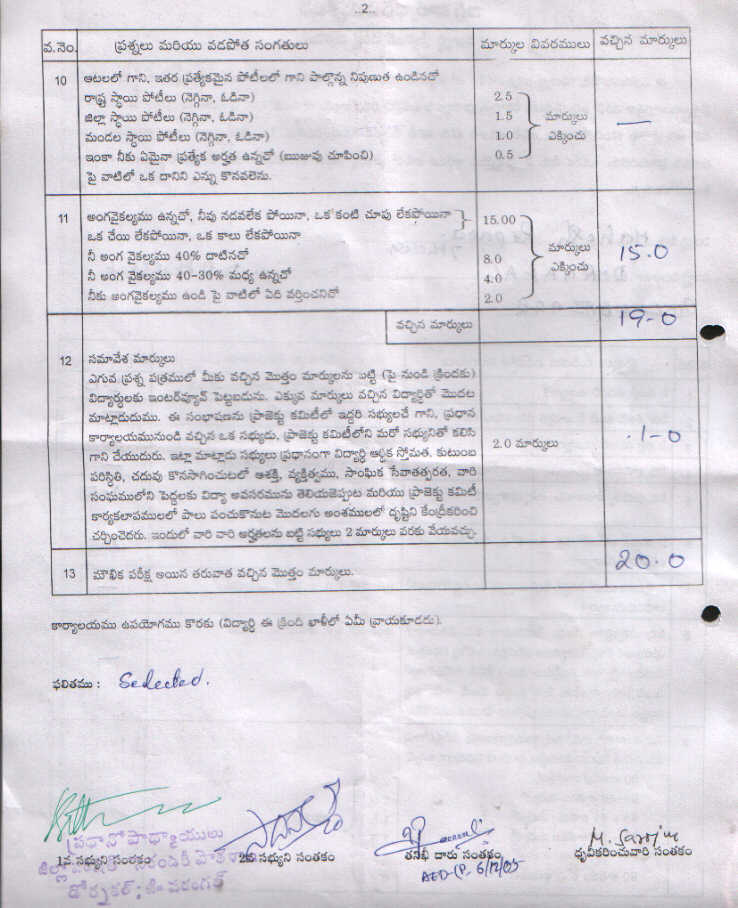 ..2..
వ.నెం. ప్రశ్నలు మరియు వడపోత సంగతులు మార్కుల వివరములు వచ్చిన మార్కులు
10 ఆటలలో గాని, ఇతర ప్రత్యేకమైన పోటీలలో గాని పాల్గొన్న నిపుణుత ఉండినచో
రాష్ట్ర స్థాయి పోటీలు (నెగ్గినా, ఓడినా) 2.5
జిల్లా స్థాయి పోటీలు (నెగ్గినా, ఓడినా) 1.5 మార్కులు —
మండల స్థాయి పోటీలు (నెగ్గినా, ఓడినా) 1.0 ఎక్కించు
ఇంకా నీకు ఏమైనా ప్రత్యేక అర్హత ఉన్నచో (ఋజువు చూపించి) 0.5
పై వాటిలో ఒక దానిని ఎన్ను కొనవలెను.
11 అంగవైకల్యము ఉన్నచో, నీవు నడవలేక పోయినా, ఒక కంటి చూపు లేకపోయినా 15.00
ఒక చేయి లేకపోయినా, ఒక కాలు లేకపోయినా
నీ అంగ వైకల్యము 40% దాటినచో 8.0 మార్కులు 15.0
నీ అంగ వైకల్యము 40-30% మధ్య ఉన్నచో 4.0 ఎక్కించు
నీకు అంగవైకల్యము ఉండి పై వాటిలో ఏది వర్తించనిచో 2.0
వచ్చిన మార్కులు 19-0
12 సమావేశ మార్కులు
ఎగువ ప్రశ్న పత్రములో మీకు వచ్చిన మొత్తం మార్కులను బట్టి (పై నుండి క్రిందకు)
విద్యార్ధులకు ఇంటర్వ్యూన్ పెట్టబడును. ఎక్కువ మార్కులు వచ్చిన విద్యార్థితో మొదట
మాట్లాడుదుము. ఈ సంభాషణను ప్రాజెక్టు కమిటీలో ఇద్దరి సభ్యులచే గాని, ప్రధాన
కార్యాలయమునుండి వచ్చిన ఒక సభ్యుడు, ప్రాజెక్టు కమిటీలోని మరో సభ్యునితో కలిసి
గాని చేయుదురు. ఇట్లా మాట్లాడు సభ్యులు ప్రధానంగా విద్యార్థి ఆర్థిక స్తోమత, కుటుంబ 2.0 మార్కులు 1-0
పరిస్థితి, చదువు కొనసాగించుటలో ఆశక్తి, వ్యక్తిత్వము, సాంఘిక సేవాతత్పరత, వారి
సంఘములోని పెద్దలకు విద్యా అవసరమును తెలియజెప్పుట మరియు ప్రాజెక్టు కమిటీ
కార్యకలాపములలో పాలు పంచుకొనుట మొదలగు అంశములలో దృష్టిని కేంద్రీకరించి
చర్చించెదరు. ఇందులో వారి వారి అర్హతలను బట్టి సభ్యులు 2 మార్కులు వరకు వేయవచ్చు.
13 మౌఖిక పరీక్ష అయిన తరువాత వచ్చిన మొత్తం మార్కులు. 20.0
కార్యాలయము ఉపయోగము కొరకు (విద్యార్థి ఈ క్రింది ఖాళీలో ఏమీ వ్రాయకూడదు).
ఫలితము : Selected.
ప్రధానోపాధ్యాయులు
M. Saroju
1వ సభ్యుని సంతకం 2వ సభ్యుని సంతకం తనిఖీ దారు సంతకం ధృవీకరించువారి సంతకం
జిల్లా
6/12/05
డోర్నకల్; జి॥ వరంగల్